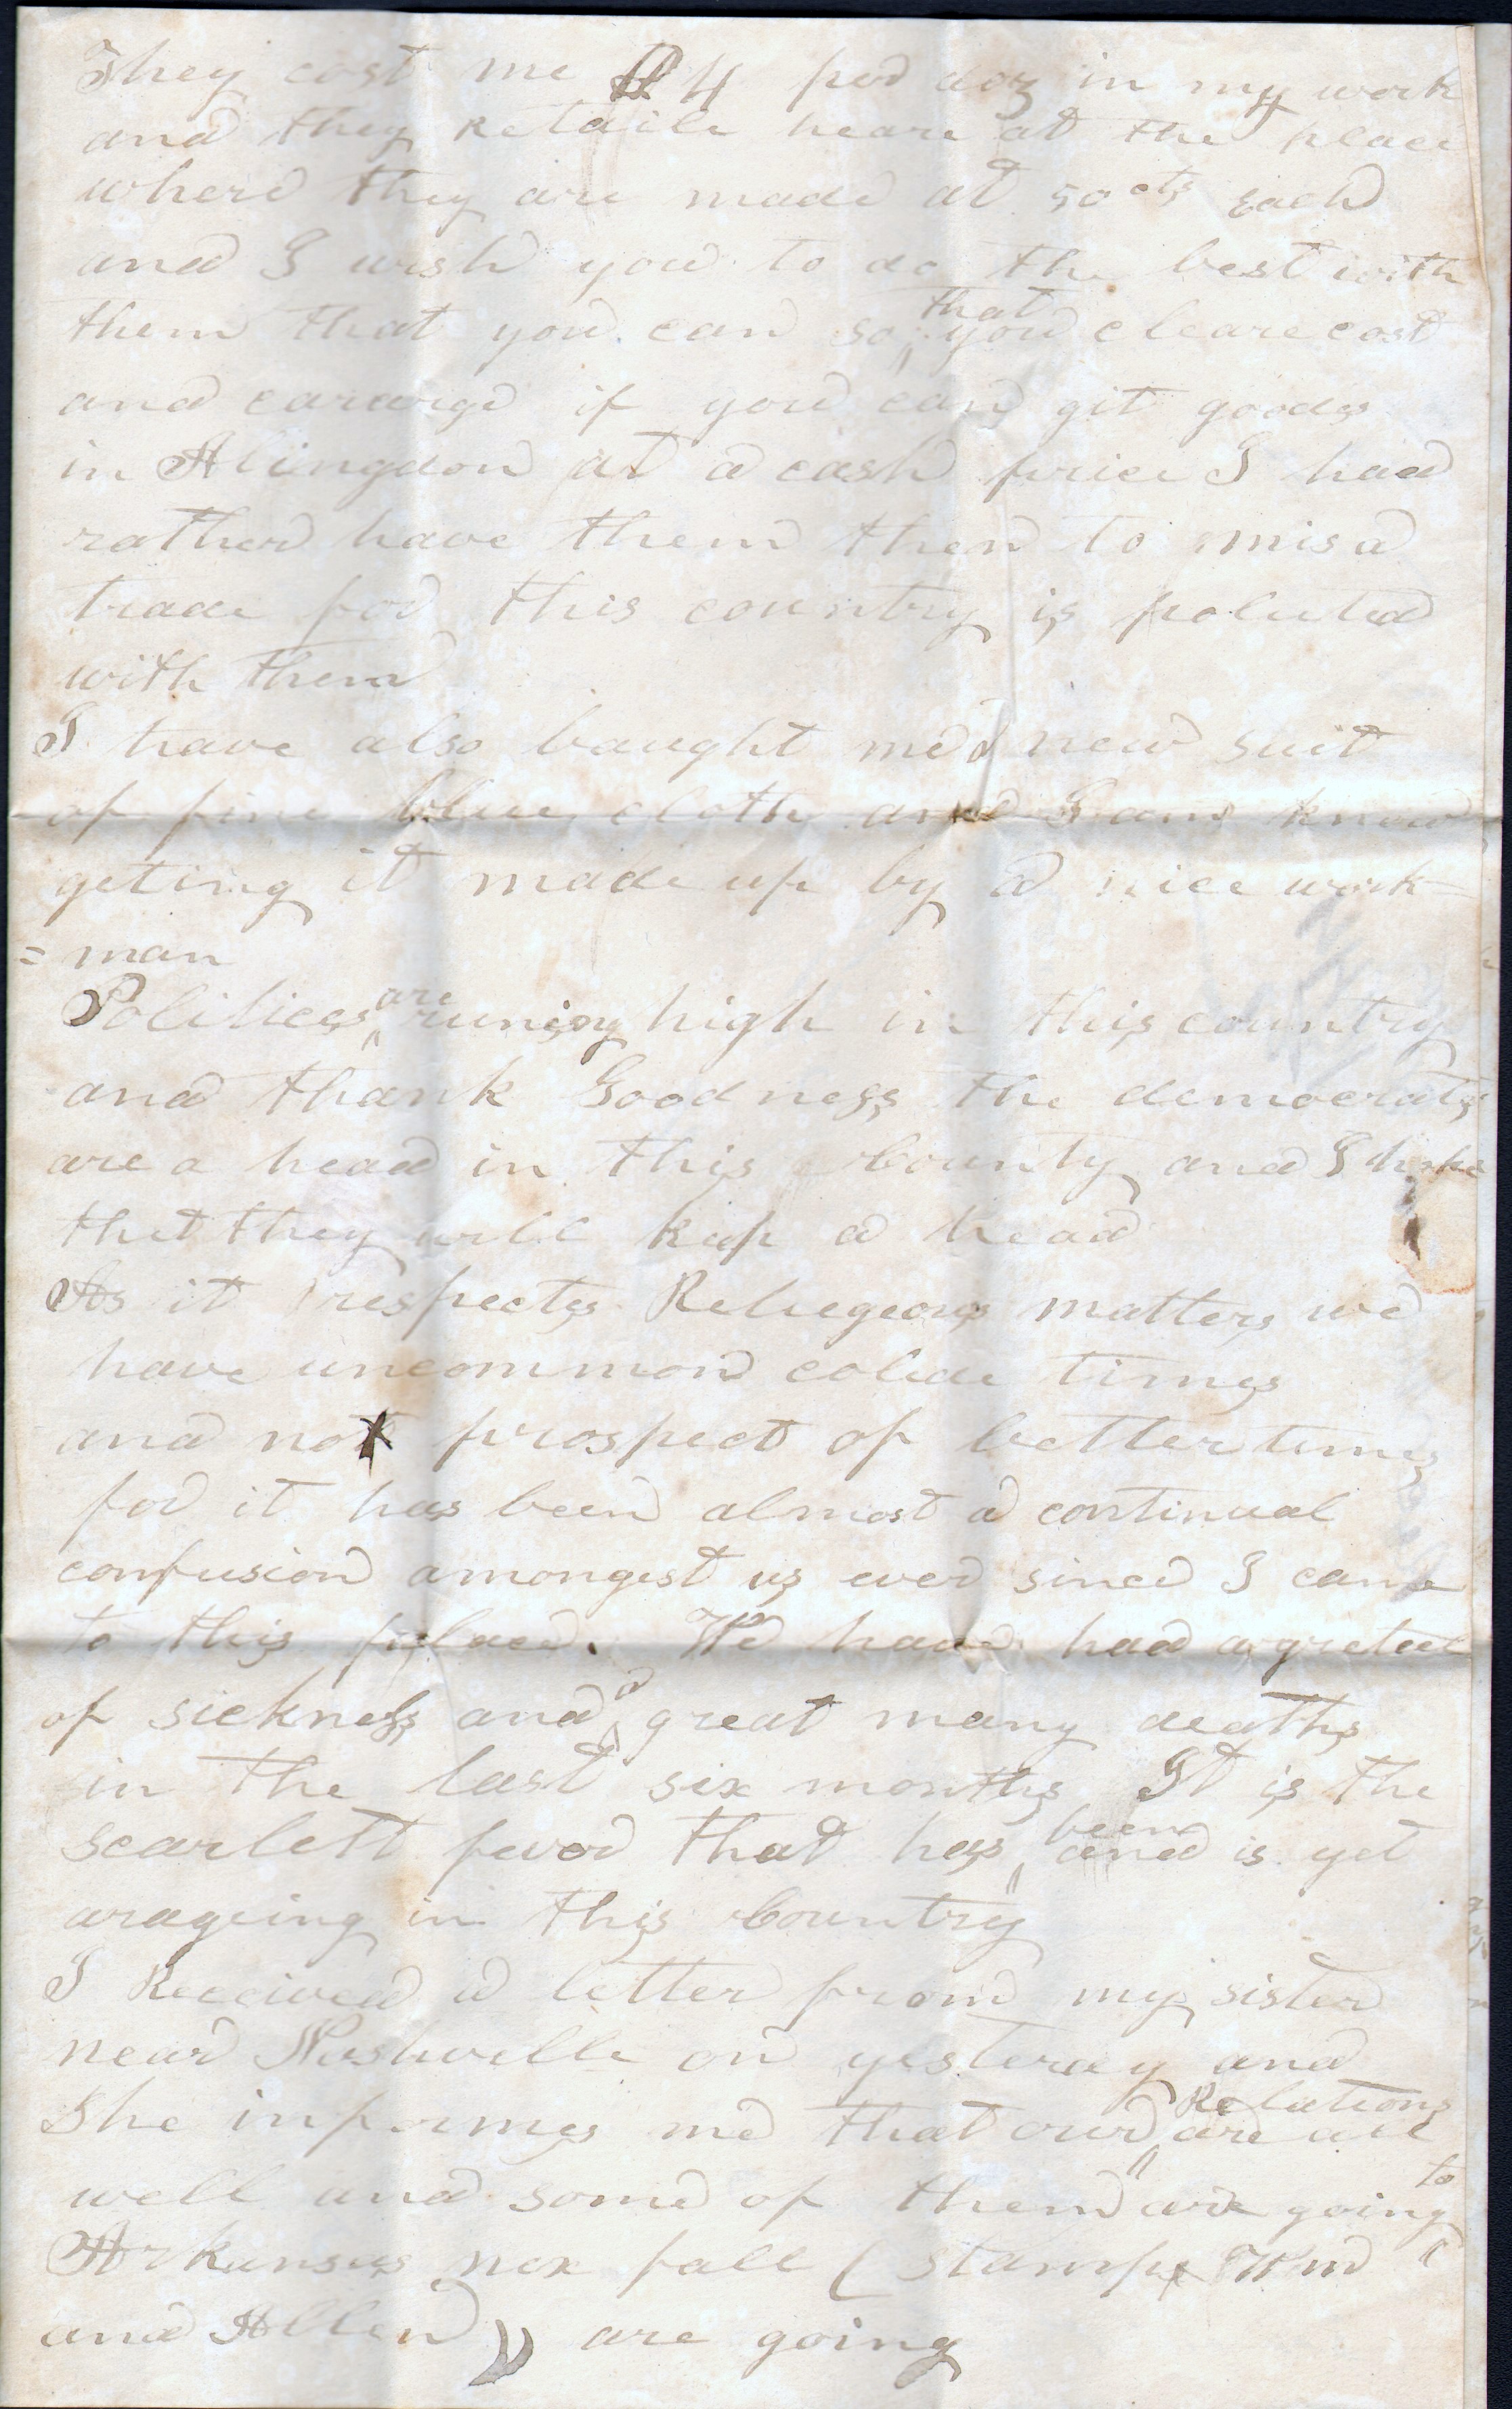 They cost me $4 per doz in my work
and they Retaile heare at the place
where they are made at 50 cts each
and I wish you to do the best with
them that you can so that you cleare cost
and cararige if you can git goods
in Abingdon at a cash price I had
rather have them then to mis a
trade for this country is poluted
with them
I have also baught me a new suit
of fine blue cloth and I am know
geting it made up by a nice work=
=man
Politices are runing high in this country
and thank Goodness the democrats
are a head in this County and I hope
that they will kep a head
As it respects Religeous matters we
have uncommon colde times
and not prospect of better times
for it has been almost a continual
confusion amongest us ever since I came
to this place. We have had a greteel
of sickness and a great many deaths
in the last six months It is the
scarlett fever that has been and is yet
arageing in this Country
I Received a letter from my sister
near Nashvelle on yesteray and
She informes me that our Relations are all
well and some of them are going to
Arkansas nex fall ( Stamps Wm
and Allen ) are going